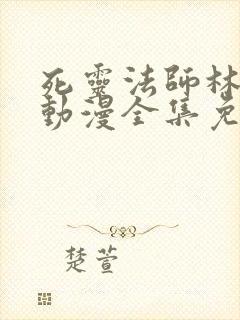 死靈法師林
動漫全集免
楚萱